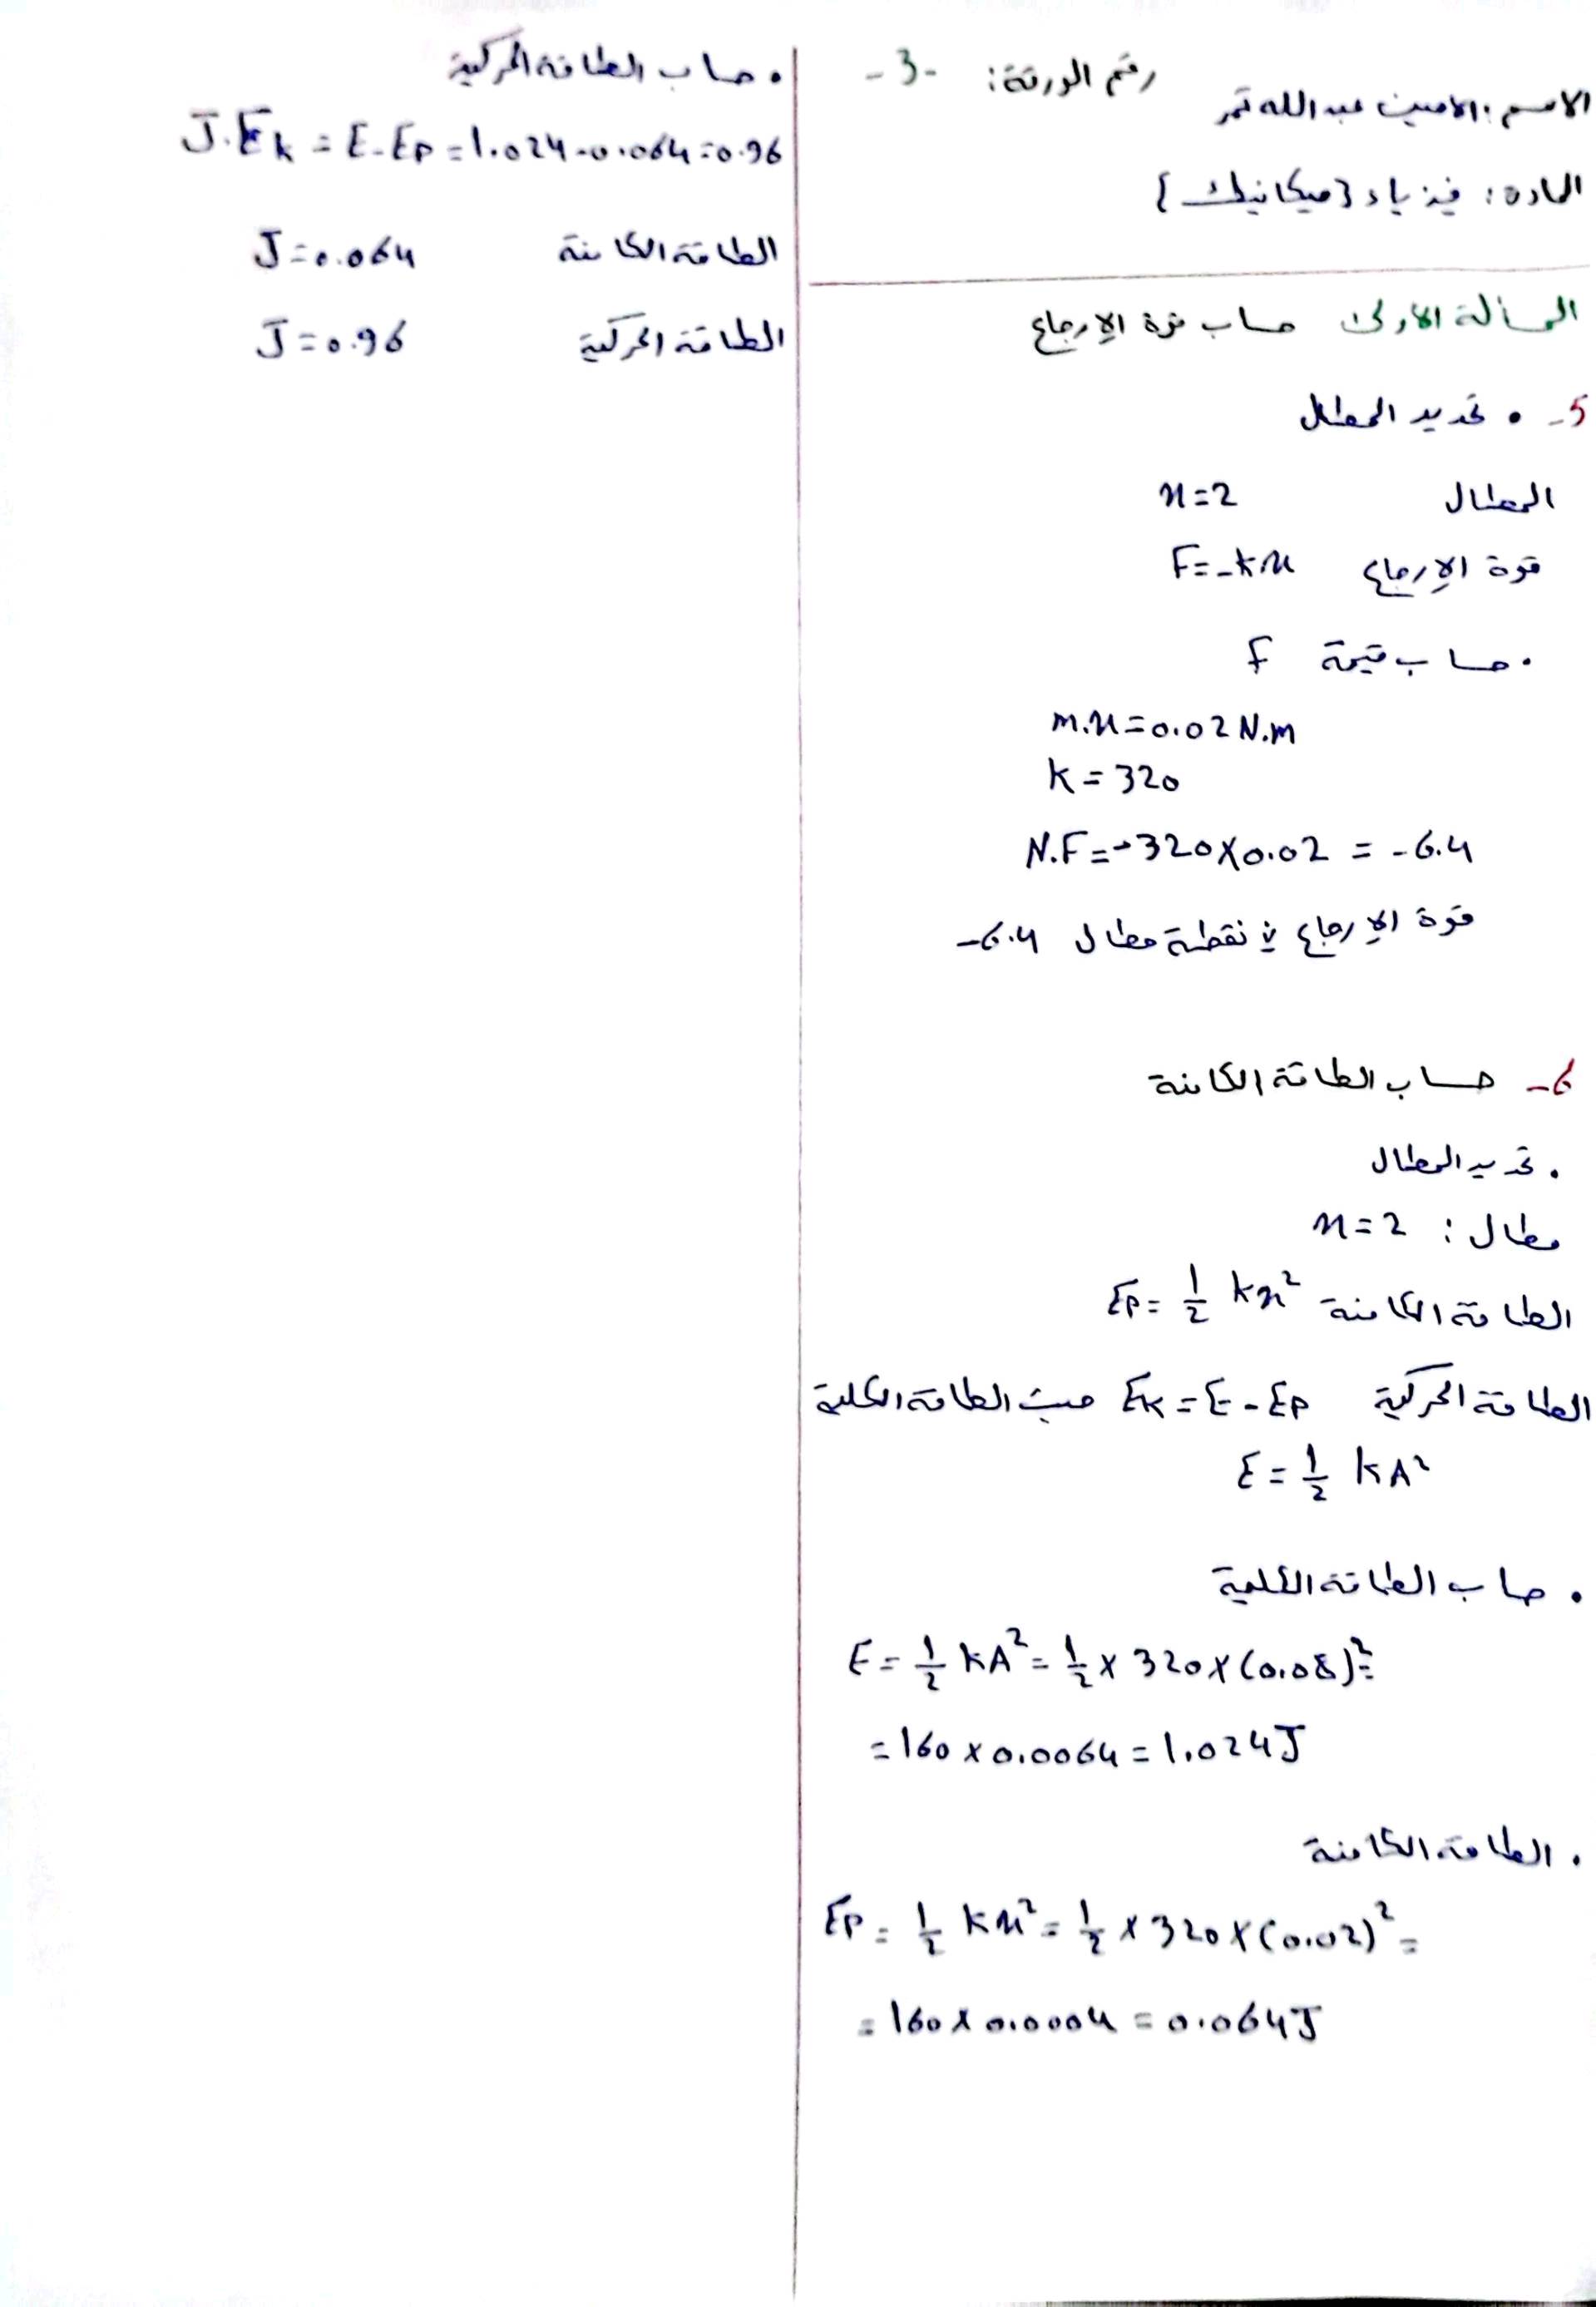 الاسم: الامين عبدالله تمر
رقم الورقة: -3-
المادة: فيزياء {ميكانيك}
المسألة الأولى حساب قوة الإرجاع
5- • تحديد المطال
المطال x=2
قوة الإرجاع F=-kx
• حساب قيمة F
m.x=0.02 N.m
k=320
N.F=-320×0.02 = -6.4
قوة الإرجاع في نقطة مطال -6.4
6- حساب الطاقة الكامنة
• تحديد المطال
مطال: x=2
الطاقة الكامنة Ep=1/2 kx²
الطاقة الحركية Ek=E-Ep حيث الطاقة الكلية
E=1/2 kA²
• حساب الطاقة الكلية
E=1/2 kA²=1/2×320×(0.08)²=
=160×0.0064=1.024J
• الطاقة الكامنة
Ep=1/2 kx²=1/2×320×(0.02)²=
=160×0.0004=0.064J
• حساب الطاقة الحركية
J.Ek=E-Ep=1.024-0.064=0.96
الطاقة الكامنة J=0.064
الطاقة الحركية J=0.96